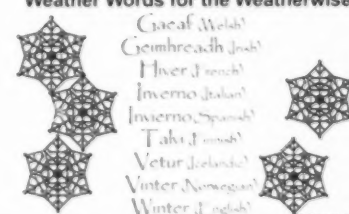 Weather Words for the Weatherwise
Gaeaf (Welsh)
Geimhreadh (Irish)
Hiver (French)
Inverno (Italian)
Invierno (Spanish)
Talvi (Finnish)
Vetur (Icelandic)
Vinter (Norwegian)
Winter (English)